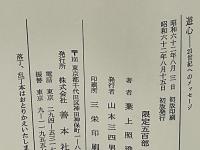 遊心―21世紀へのメッセージ
昭和六十二年八月三日 初版印刷
昭和六十二年八月十五日 初版発行
限定五百部
著者 葉上照澄
発行者 山本三四男
印刷所 三栄印刷
発行所 株式会社 善本社
〒101 東京都千代田区神田神保町一―八
電話 東京
振替 東京
落丁、乱丁本はおとりかえいたします